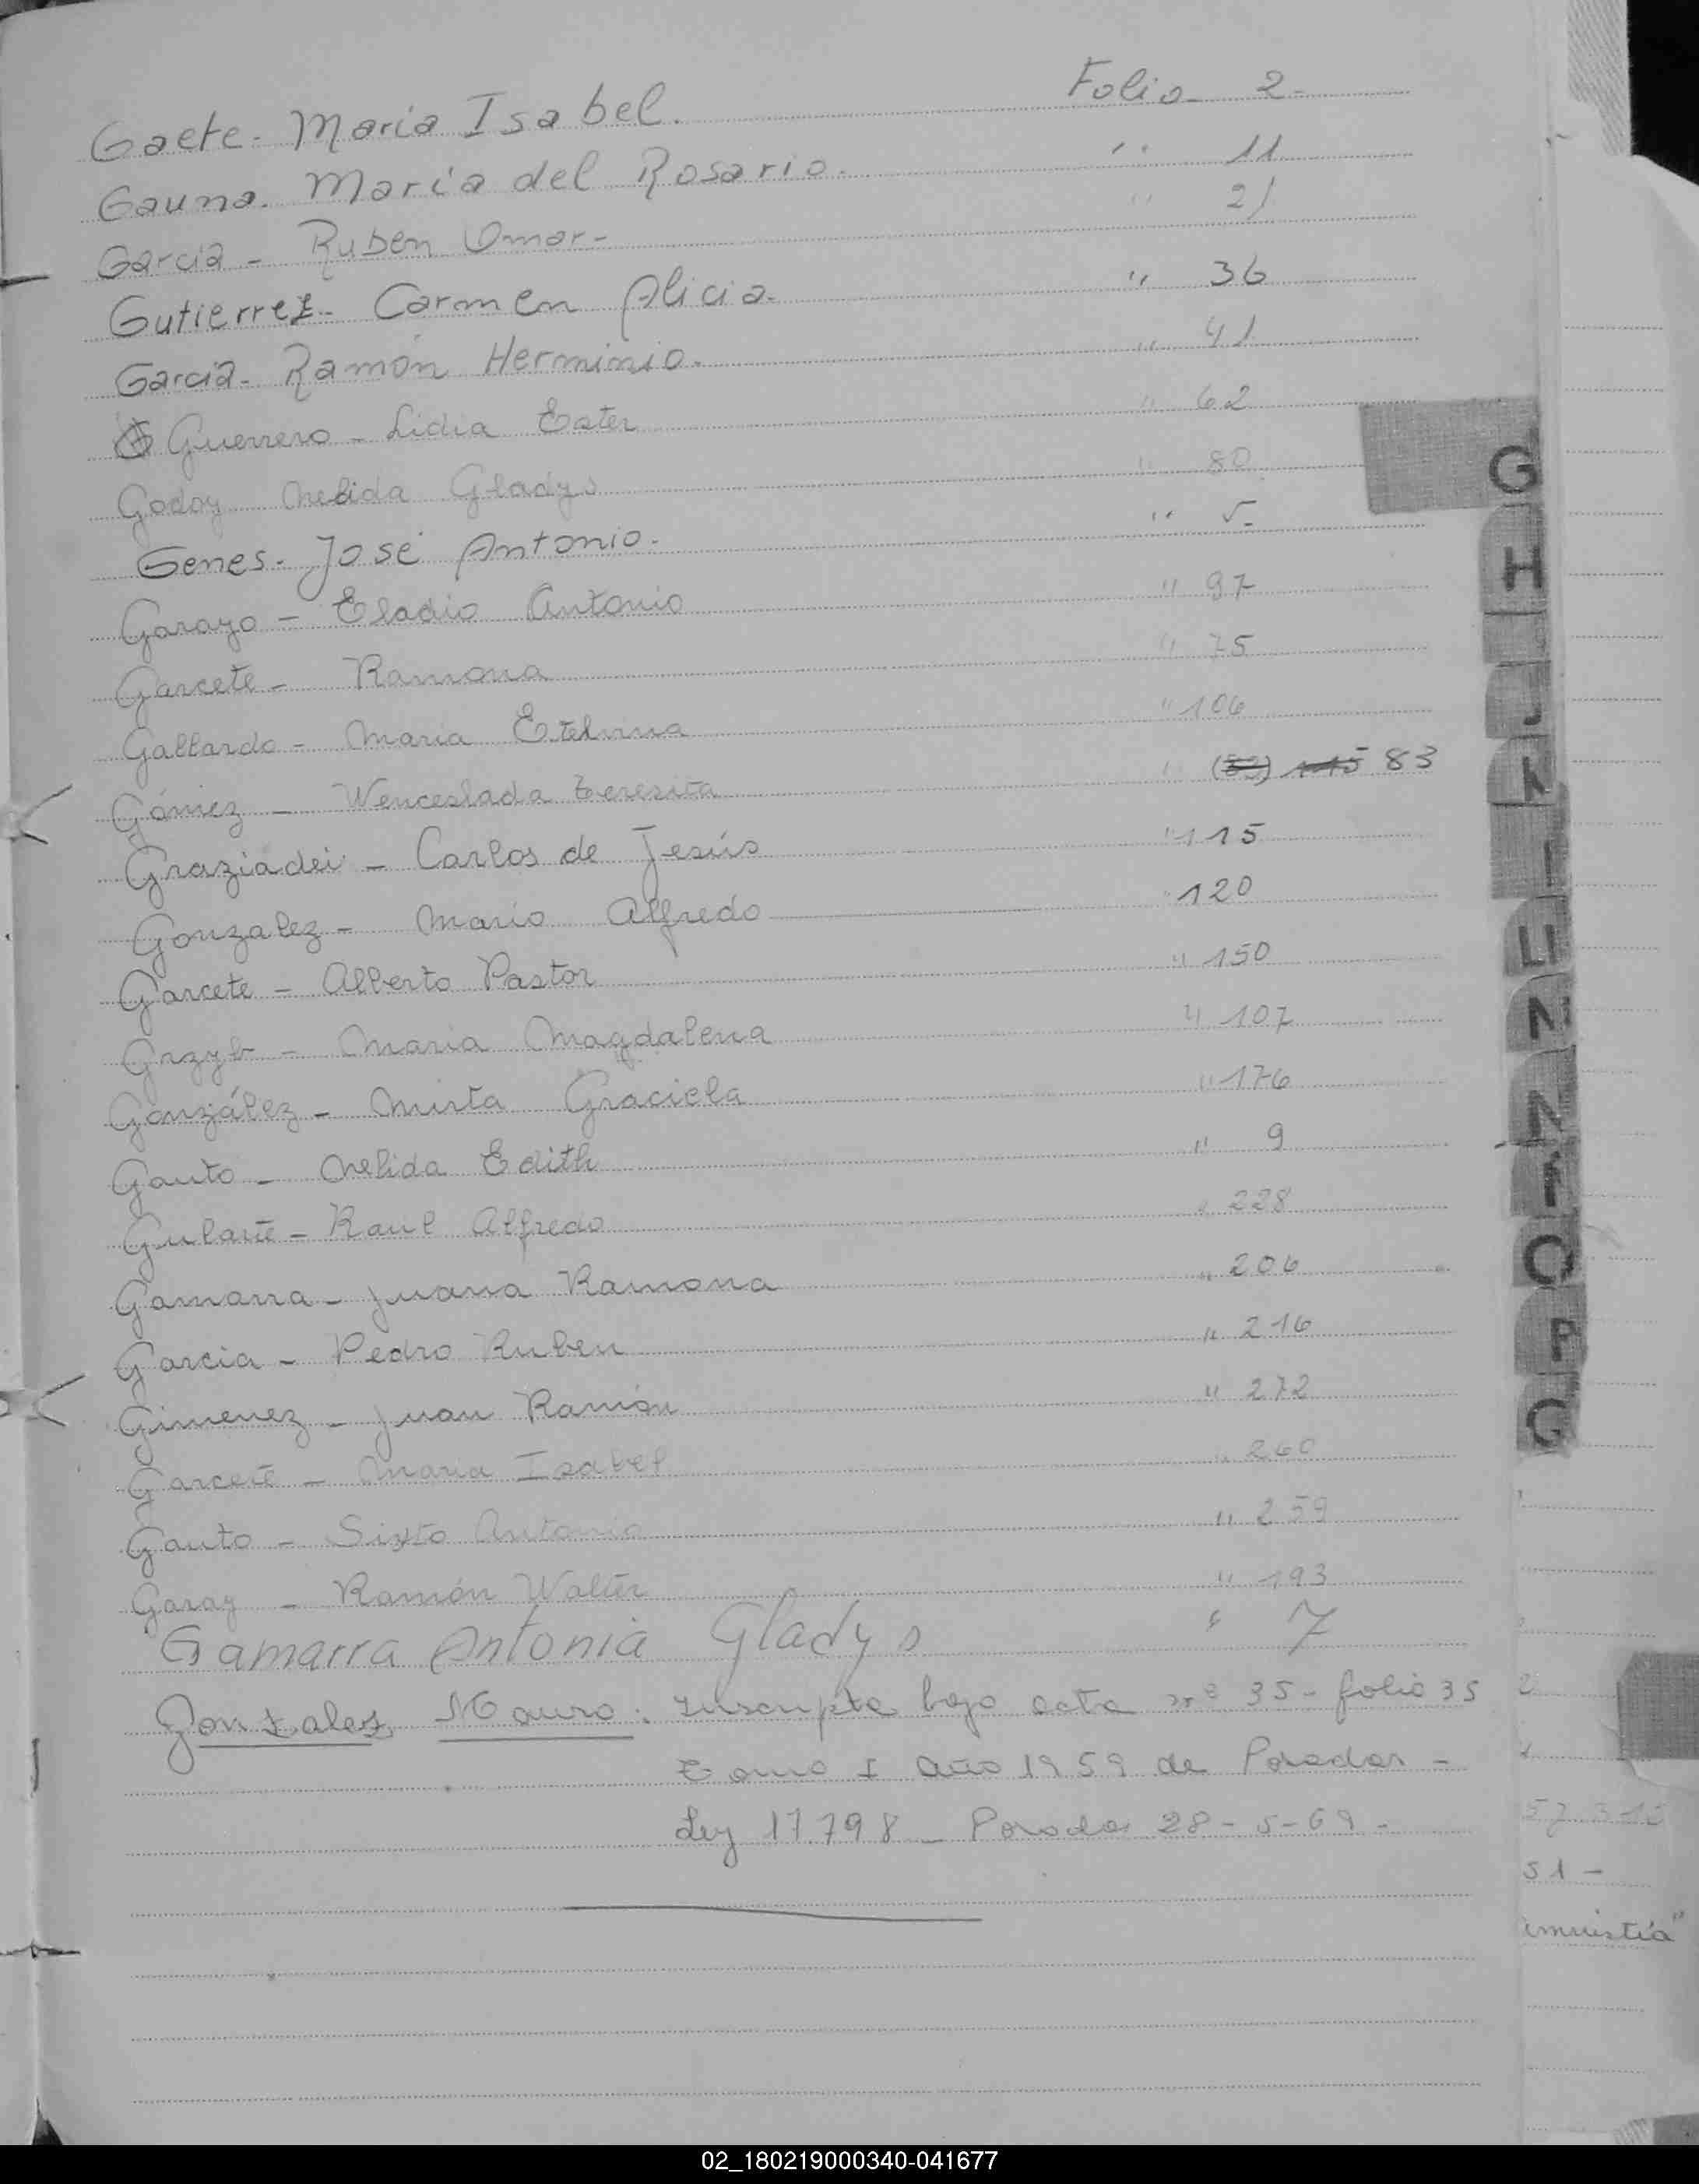 Gaete - Maria Isabel. Folio 2 -
Gauna. Maria del Rosario. " 11
Garcia - Ruben Omar - " 21
Gutierrez - Carmen Alicia. " 36
Garcia - Ramón Herminio. " 41
Guerrero - Lidia Ester " 62
Godoy Nelida Gladys " 80
Genes - José Antonio. " 5 -
Garayo - Eladio Antonio " 97
Garcete - Ramona " 75
Gallardo - Maria Etelvina " 106
Gómez - Wenceslada Teresita " (83) 115 83
Graziadei - Carlos de Jesús " 115
Gonzalez - Mario Alfredo " 120
Garcete - Alberto Pastor " 150
Grzyb - Maria Magdalena " 107
González - Mirta Graciela " 176
Gauto - Nelida Edith " 9
Gularte - Raul Alfredo " 228
Gamarra - Juana Ramona " 206
Garcia - Pedro Ruben " 216
Gimenez - Juan Ramón " 272
Garcete - Maria Isabel " 260
Gauto - Sixto Antonio " 259
Garay - Ramón Walter " 193
Gamarra Antonia Gladys " 7
Gonzalez, Mauro: Inscripto bajo acta nº 35 - folio 35
Tomo I Año 1959 de Posadas -
Ley 17.798 - Posadas 28-5-69 -
G
H
J
K
L
LL
N
Ñ
O
P
51 -
amnistía"
02_180219000340-041677